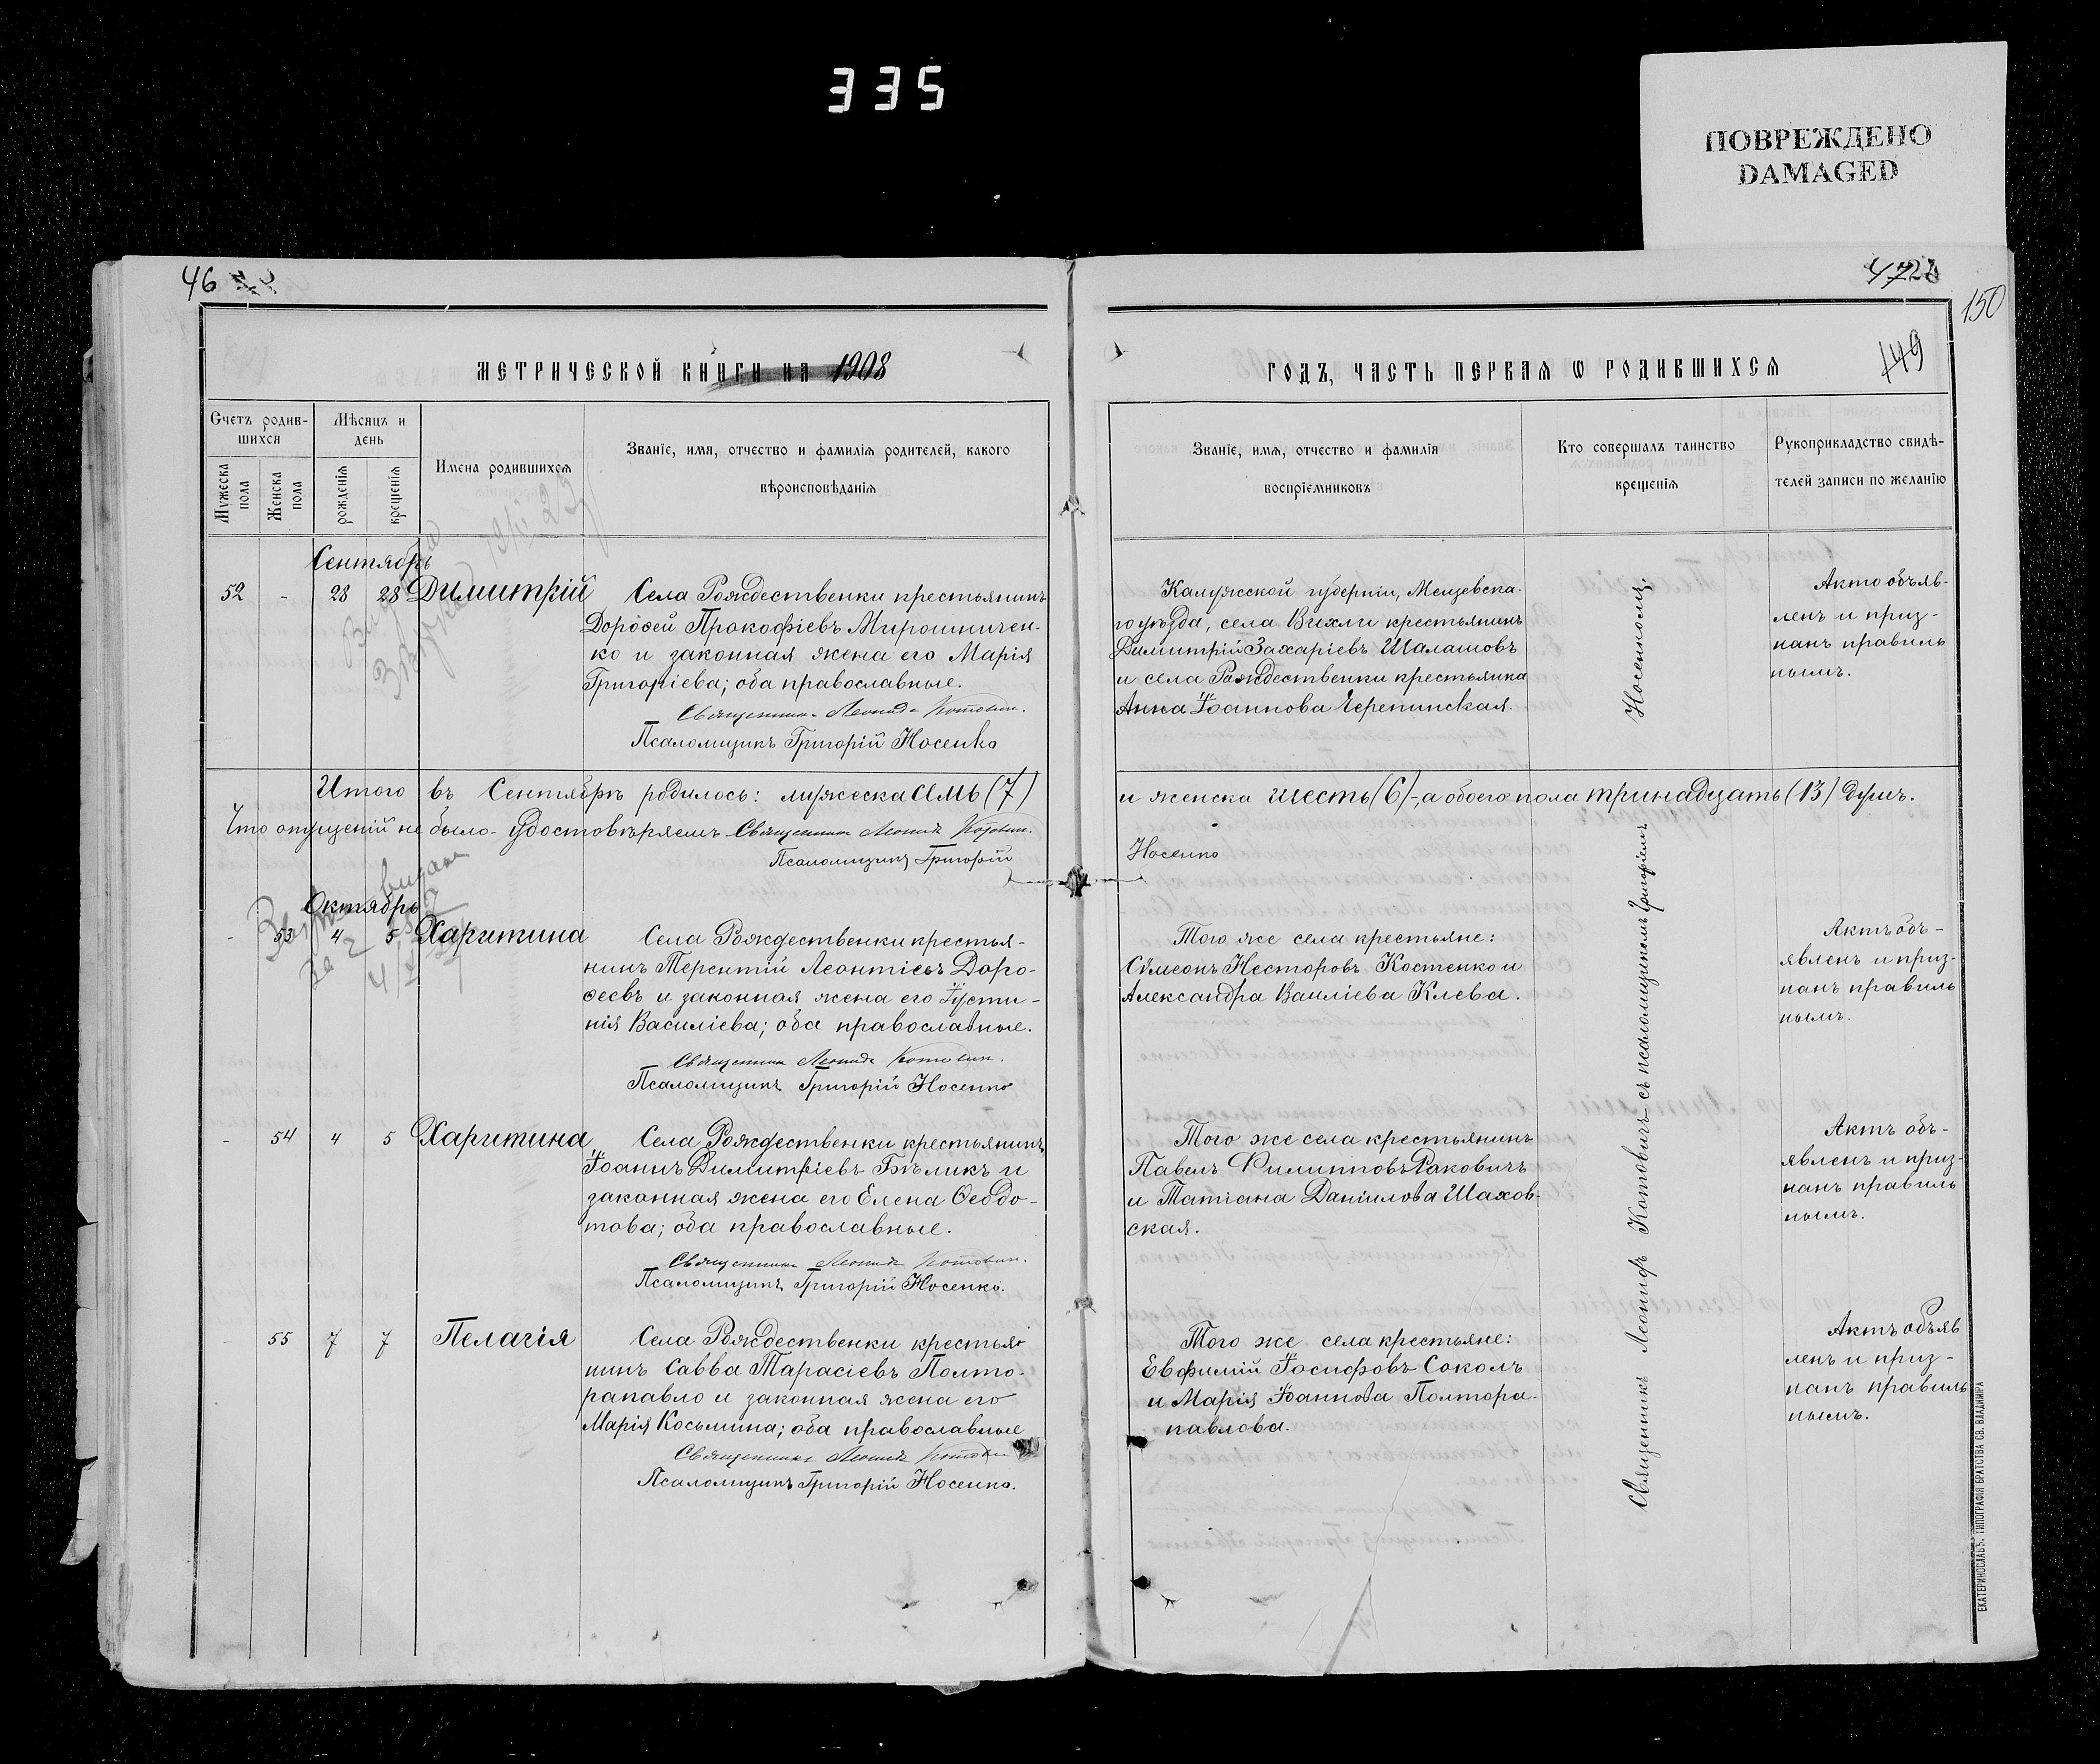 335
ПОВРЕЖДЕНО
DAMAGED
46
150
149
МЕТРИЧЕСКОЙ КНИГИ НА 1908
ГОДЪ, ЧАСТЬ ПЕРВАЯ Ѡ РОДИВШИХСЯ
Счетъ родив-
шихся
Мужеска пола
Женска пола
Мѣсяцъ и
день
рожденія
крещенія
Имена родившихся
Званіе, имя, отчество и фамилія родителей, какого
вѣроисповѣданія
Званіе, имя, отчество и фамилія
воспріемниковъ
Кто совершалъ таинство
крещенія
Рукоприкладство свидѣ-
телей записи по желанію
Сентябрь
52 - 28 28 Димитрій
Села Рождественки крестьянинъ
Дороѳей Прокофіевъ Мирошничен-
ко и законная жена его Марія
Григоріева; оба православные.
Священникъ Леонидъ Котовичъ.
Псаломщикъ Григорій Носенко
Калужской губерніи, Мещевска-
го уѣзда, села Вихли крестьянинъ
Димитрій Захаріевъ Шалашовъ
и села Рождественки крестьянка
Анна Іоаннова Черепинская.
Актъ объяв-
ленъ и приз-
нанъ правиль
нымъ.
Итого въ Сентябрѣ родилось: мужеска семь (7)
и женска шесть (6)-, а обоего пола тринадцать (13) душъ.
Что опущеній не было - удостовѣряемъ Священникъ Леонидъ Котовичъ.
Псаломщикъ Григорій
Носенко
Октябрь
- 53 4 5 Харитина
Села Рождественки крестья-
нинъ Терентій Леонтіевъ Доро-
ѳеевъ и законная жена его Іусти-
нія Василіева; оба православные.
Священникъ Леонидъ Котовичъ.
Псаломщикъ Григорій Носенко
Того же села крестьяне:
Сѵмеонъ Несторовъ Костенко и
Александра Василіева Клева.
Актъ объ-
явленъ и приз-
нанъ правиль
нымъ.
- 54 4 5 Харитина
Села Рождественки крестьянинъ
Іоаннъ Димитріевъ Бѣликъ и
законная жена его Елена Ѳеодо-
това; оба православные.
Священникъ Леонидъ Котовичъ.
Псаломщикъ Григорій Носенко.
Того же села крестьянинъ
Павелъ Филипповъ Ракович
и Татіана Даніилова Шахов-
ская.
Актъ объ-
явленъ и приз-
нанъ правиль
нымъ.
- 55 7 7 Пелагія
Села Рождественки крестья-
нинъ Савва Тарасіевъ Полто-
рапавло и законная жена его
Марія Косьмина; оба православные
Священникъ Леонидъ Котович
Псаломщикъ Григорій Носенко.
Того же села крестьяне:
Евфимій Іосифовъ Соколъ
и Марія Іоаннова Полтора-
павлова.
Актъ объяв
ленъ и приз-
нанъ правиль
нымъ.
Священникъ Леонидъ Котовичъ съ псаломщикомъ Григоріемъ
Носенкомъ.
ЕКАТЕРИНОСЛАВЪ. ТИПОГРАФІЯ БРАТСТВА СВ. ВЛАДИМІРА